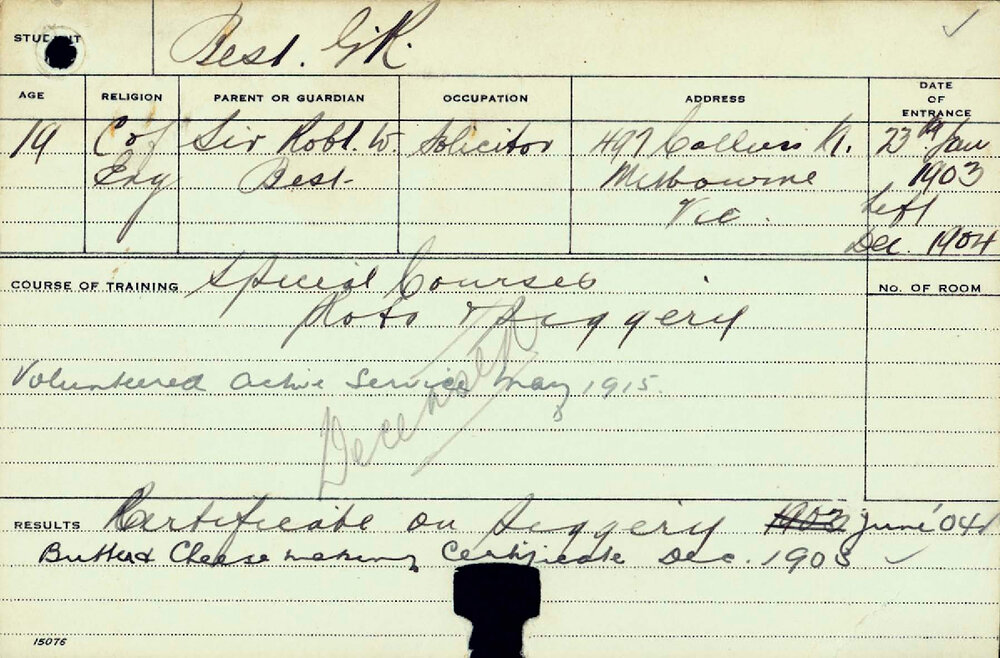 STUDENT Best. G R.
AGE RELIGION PARENT OR GUARDIAN OCCUPATION ADDRESS DATE OF ENTRANCE
19 C of Sir Robt. W. Solicitor 497 Collins 23rd Jan
Eng Best. Melbourne 1903
Vic. Left
Dec. 1904
COURSE OF TRAINING Special Courses No. OF ROOM
& Piggery
Volunteered active Service May 1915.
Deceased
RESULTS Certificate on Piggery 1903 June '04
Butter & Cheese making Certificate Dec. 1903
15076